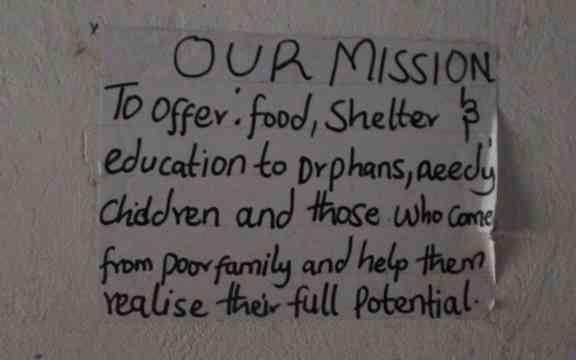 OUR MISSION
To offer: food, Shelter &
education to orphans, needy
Chiddren and those who come
from poor family and help them
realise their full Potential.